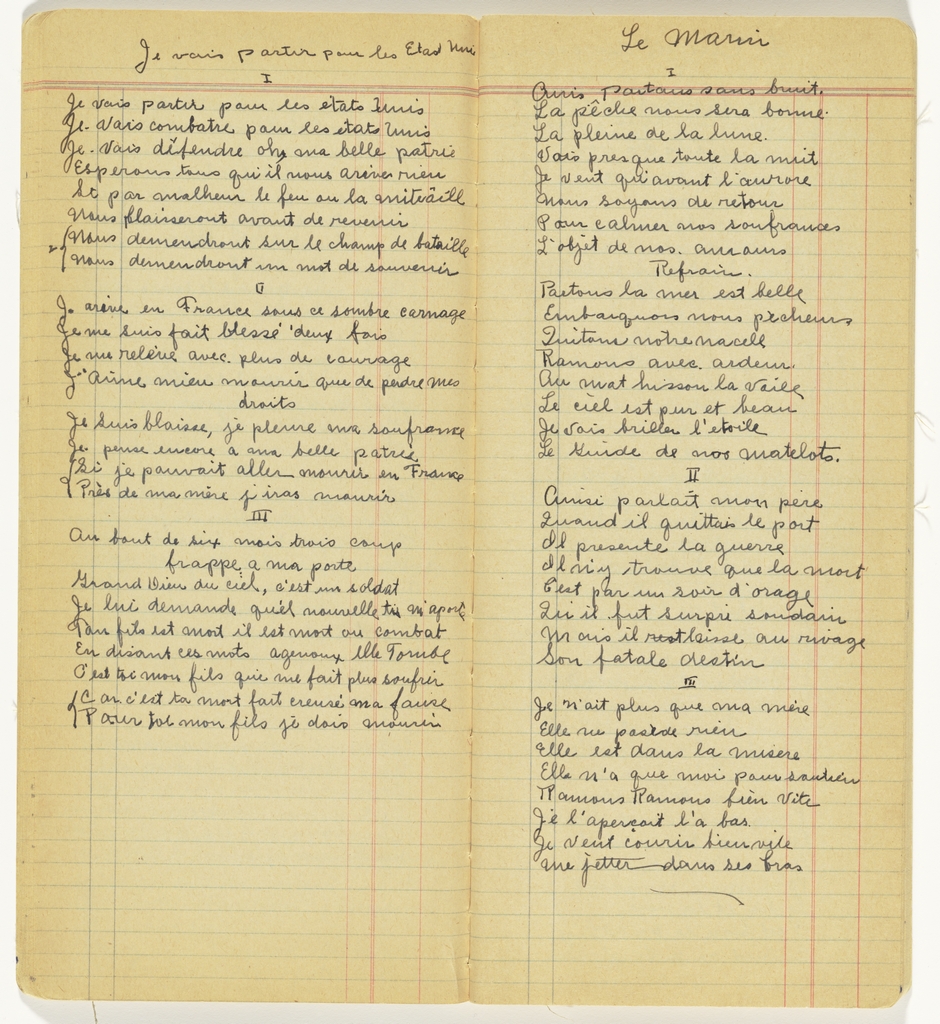 Je vais partir pour les Etad Unis
I
Je vais partir pour les états Unis
Je vais combatre pour les états Unis
Je vais défendre oh, ma belle patrie
Esperons tous qu'il nous arives rien
Si par malheur le feu ou la mitrâill
Nous blaisseront avant de revenir
Nous demendront sur le champ de bataille
Nous demendront un mot de souvenir
II
J. arive en France sous ce sombre carnage
Je me suis fait blessé deux fois
Je me relève avec plus de courage
J'Aime mieu mourir que de perdre mes
droits
Je suis blaisse, je pleure ma soufrance
Je pense encore a ma belle patrie
Si je pouvait aller mourir en France
Près de ma mère j'iras mourir
III
Au bout de six mois trois coup
frappe a ma porte
Grand Dieu du ciel, c'est un soldat
Je lui demande quel nouvelle tu m'aporte
Ton fils est mort il est mort au combat
En disant ces mots agenoux Elle Tombe
C'est toi mon fils que me fait plus soufrir
Car c'est ta mort fait creusé ma fause
Pour toi mon fils je dois mourir
Le Marin
I
Amis partons sans bruit.
La pêche nous sera bonne.
La pleine de la lune.
Vais presque toute la nuit
Je veut qu'avant l'aurore
Nous soyons de retour
Pour calmer nos soufrances
L'objet de nos. amours
Refrain.
Partons la mer est belle
Embarquons nous pecheurs
Quitons notre nacelle
Ramons avec ardeur.
Au mat hisson la voile
Le ciel est pur et beau
Je vois briller l'etoile
Le Guide de nos matelots.
II
Ainsi parlait mon père
Quand il quittais le port
Il presente la guerre
Il n'y trouve que la mort
C'est par un soir d'orage
Qu'il fut surpri soudain
Mais il laisse au rivage
Son fatale destin
III
Je n'ait plus que ma mère
Elle ne posède rien
Elle est dans la misère
Elle n'a que moi pour soutien
Ramons Ramons bien Vite
Je l'aperçoit l'a bas.
Je veut courir bien vite
me jetter dans ses bras